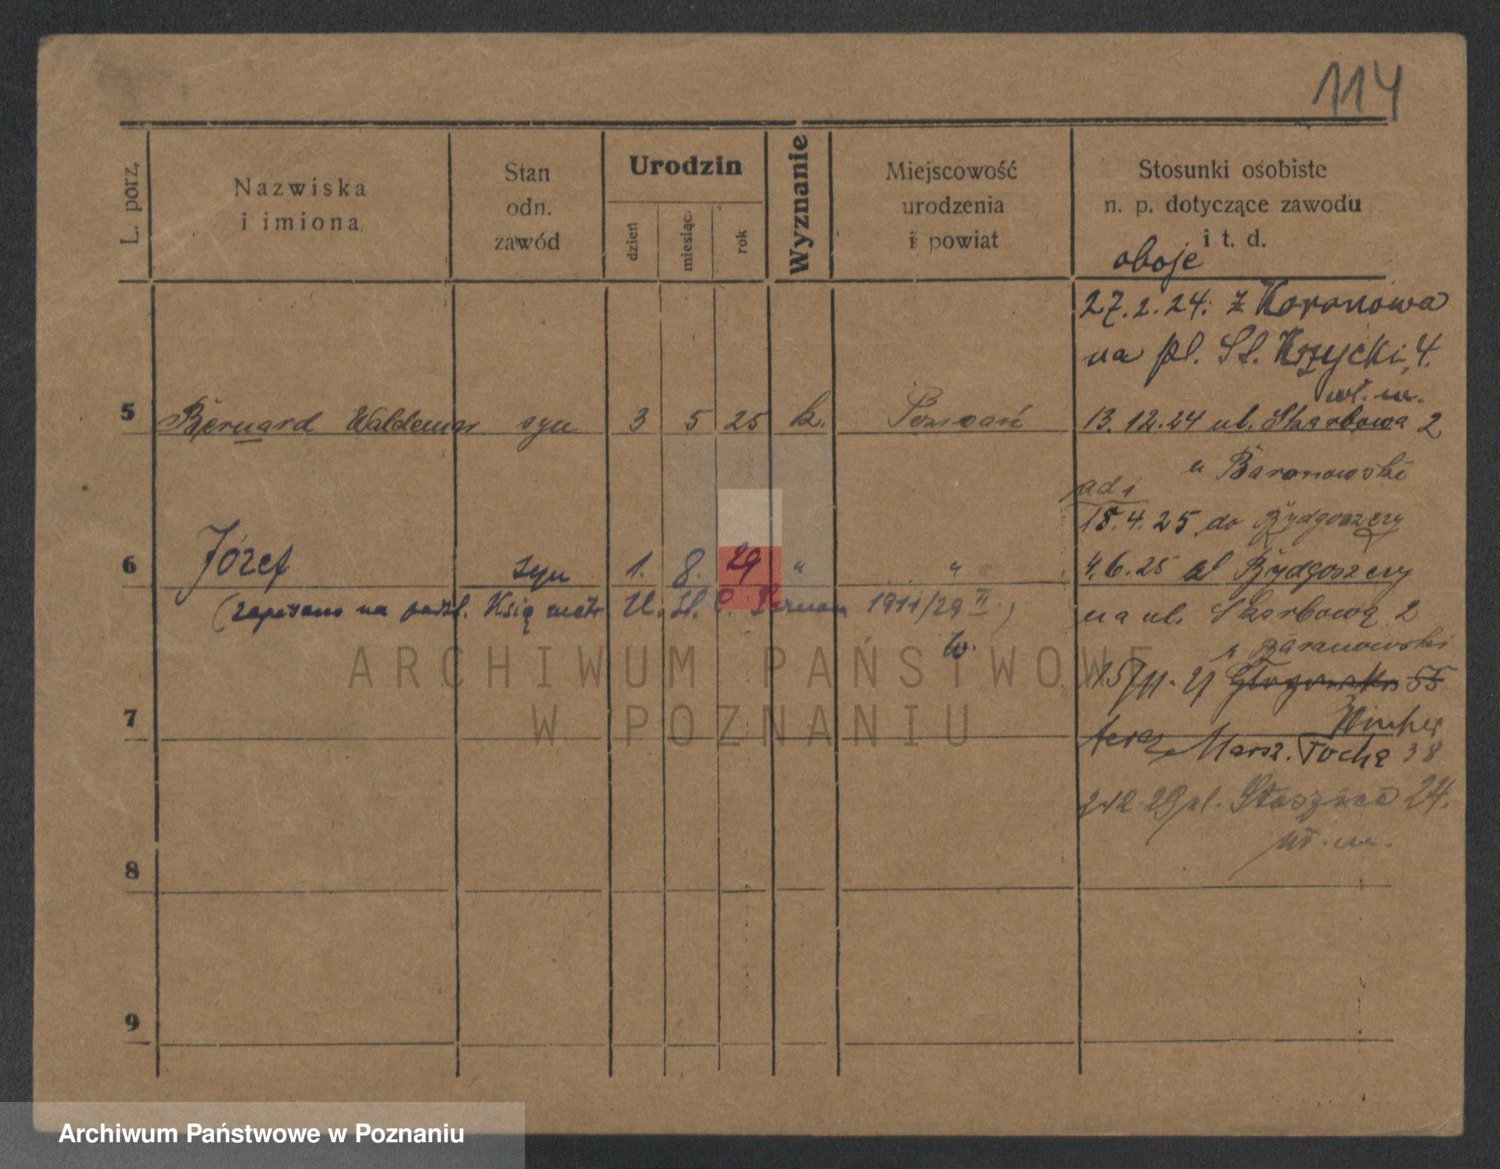 114
L. porz.
Nazwiska
i imiona
Stan
odn.
zawód
Urodzin
dzień
miesiąc
rok
Wyznanie
Miejscowość
urodzenia
i powiat
Stosunki osobiste
n. p. dotyczące zawodu
i t. d.
oboje
27.2.24. z Koronowa
na pl. Śt. Krzycki, 4.
5 Bernard Waldemar syn 3 5 25 k. Poznań
13.12.24 ul. Skarbowa 2
u Baranowski
ad 1
15.4.25 do Bydgoszczy
6 Józef syn 1. 8. 29 " "
4.6.25 Bydgoszczy
(zapisano na Ksią 1911/29 II )
na ul. Skarbową 2
Baranowski
55
7
teraz Marsz. Focha 38
29 pl. Staszica 24.
8
9
ARCHIWUM PAŃSTWOWE
W POZNANIU
Archiwum Państwowe w Poznaniu